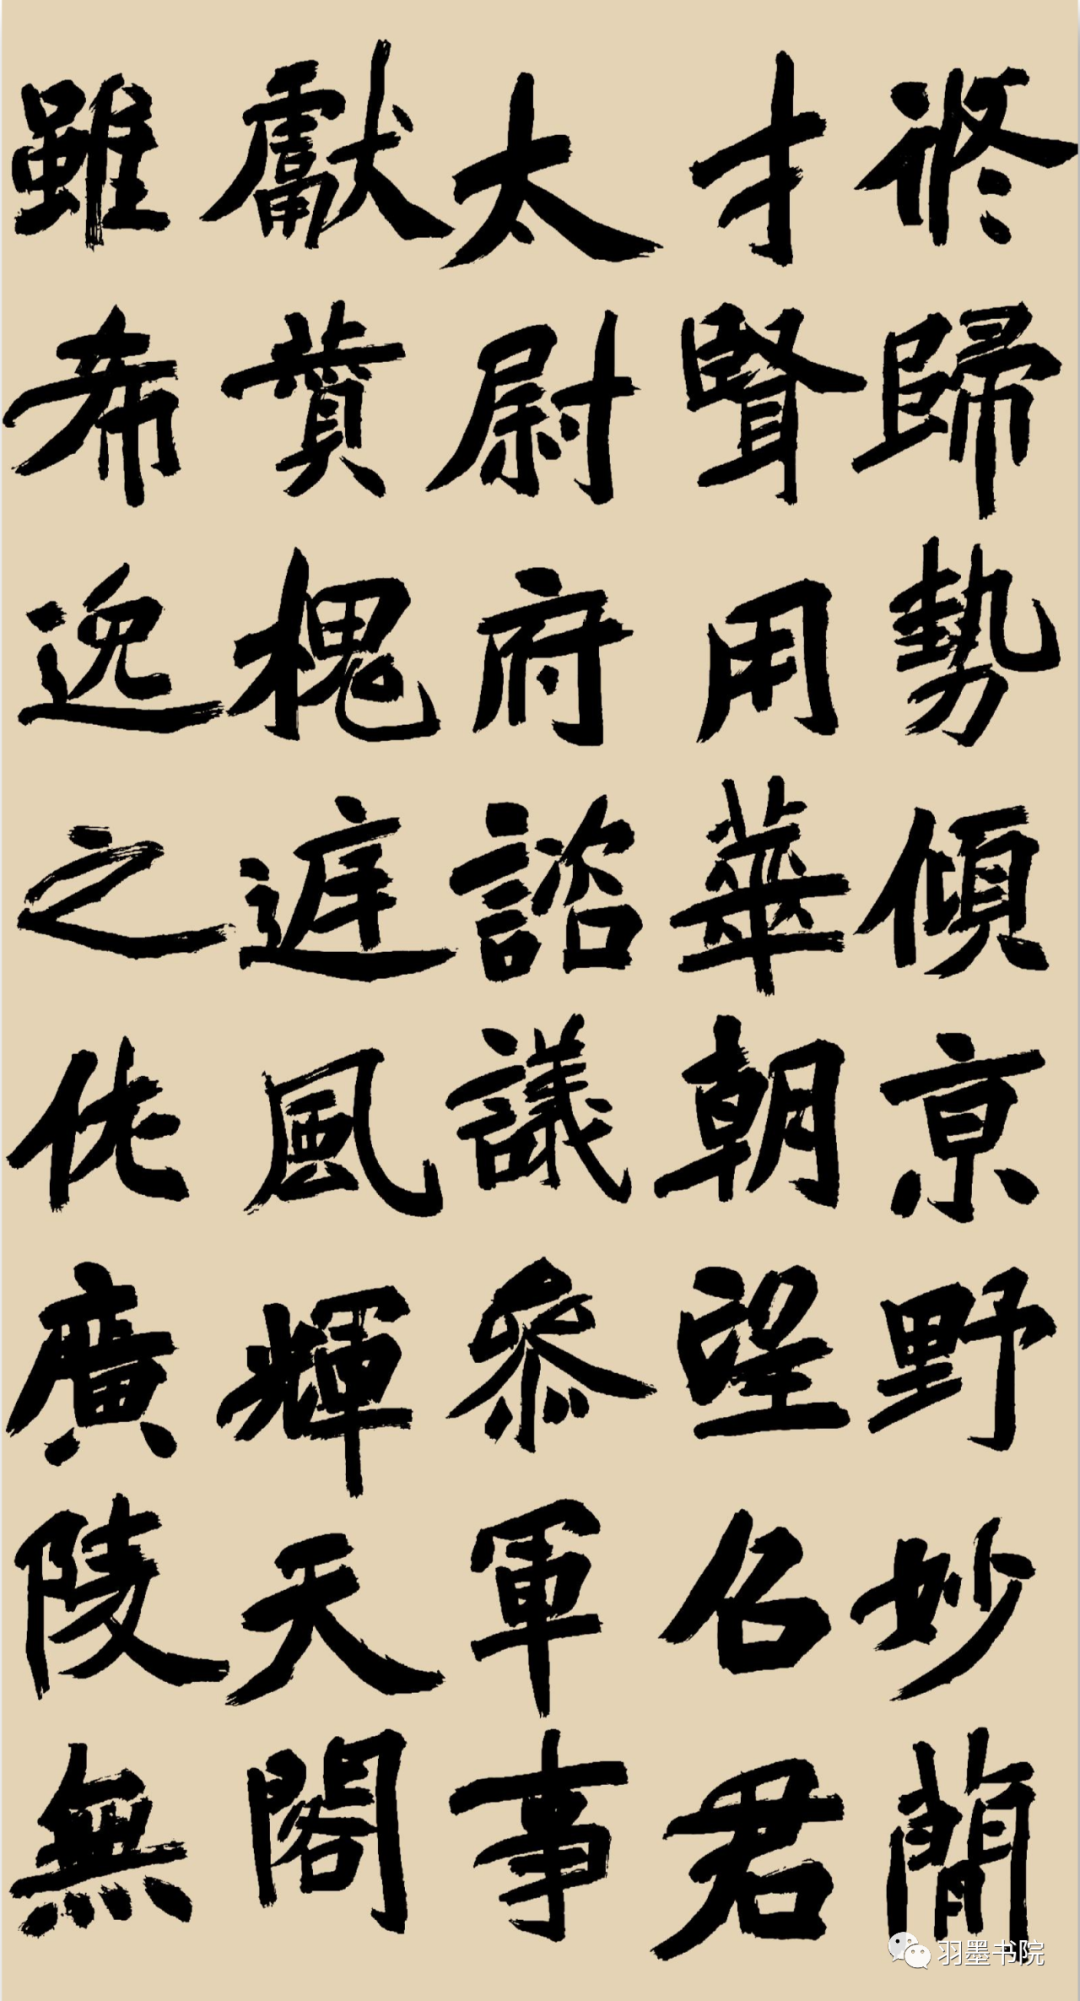 脩歸勢傾京野妙簡
才賢用華朝望名君
太尉府諮議參軍事
獻賛槐遅風輝天閣
雖希逸之佐廣陵無
羽墨书院